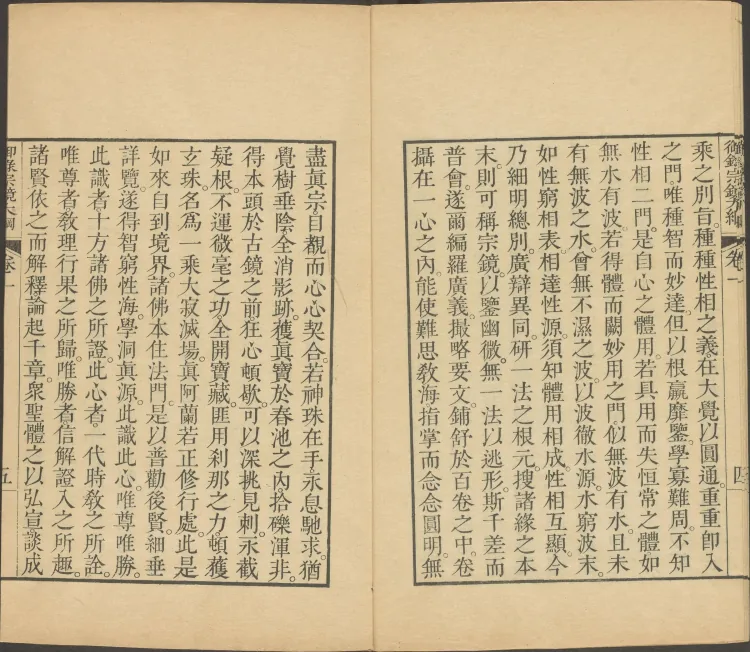 御錄宗鏡大綱 卷一 四
乘之別旨種種性相之義在大覺以圓通重重卽入
之門唯種智而妙達但以根羸靡鑒學寡難周不知
性相二門是自心之體用若具用而失恒常之體如
無水有波若得體而闕妙用之門似無波有水且未
有無波之水曾無不濕之波以波徹水源水窮波末
如性窮相表相達性源須知體用相成性相互顯今
乃細明總別廣辯異同研一法之根元搜諸緣之本
末則可稱宗鏡以鑒幽微無一法以逃形斯千差而
普會遂爾編羅廣義撮略要文鋪舒於百卷之中卷
攝在一心之內能使難思敎海指掌而念念圓明無
盡眞宗目覩而心心契合若神珠在手永息馳求猶
覺樹垂陰全消影跡獲眞寶於春池之內拾礫渾非
得本頭於古鏡之前狂心頓歇可以深挑見刺永截
疑根不運微毫之功全開寶藏匪用刹那之力頓獲
玄珠名爲一乘大寂滅場眞阿蘭若正修行處此是
如來自到境界諸佛本住法門是以普勸後賢細垂
詳覽遂得智窮性海學洞眞源此識此心唯尊唯勝
此識者十方諸佛之所證此心者一代時敎之所詮
唯尊者敎理行果之所歸唯勝者信解證入之所趣
諸賢依之而解釋論起千章衆聖體之以弘宣談成
御錄宗鏡大綱 卷一 五